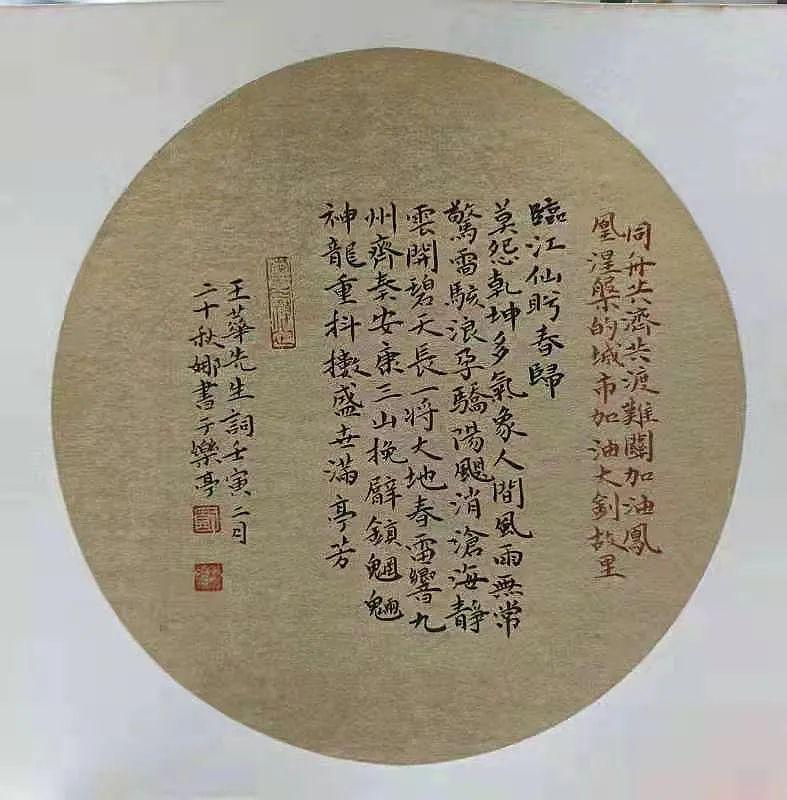 同舟共濟共渡難關加油鳳
凰涅槃的城市加油大釗故里
臨江仙盼春歸
莫怨乾坤多氣象人間風雨無常
驚雷駭浪孕驕陽颸消滄海靜
雲開碧天長一將大地春雷響九
州齊奏安康三山挽臂鎮魍魎
神龍重抖擻盛世滿亭芳
王華先生詞壬寅二月
二十秋娜書于樂亭